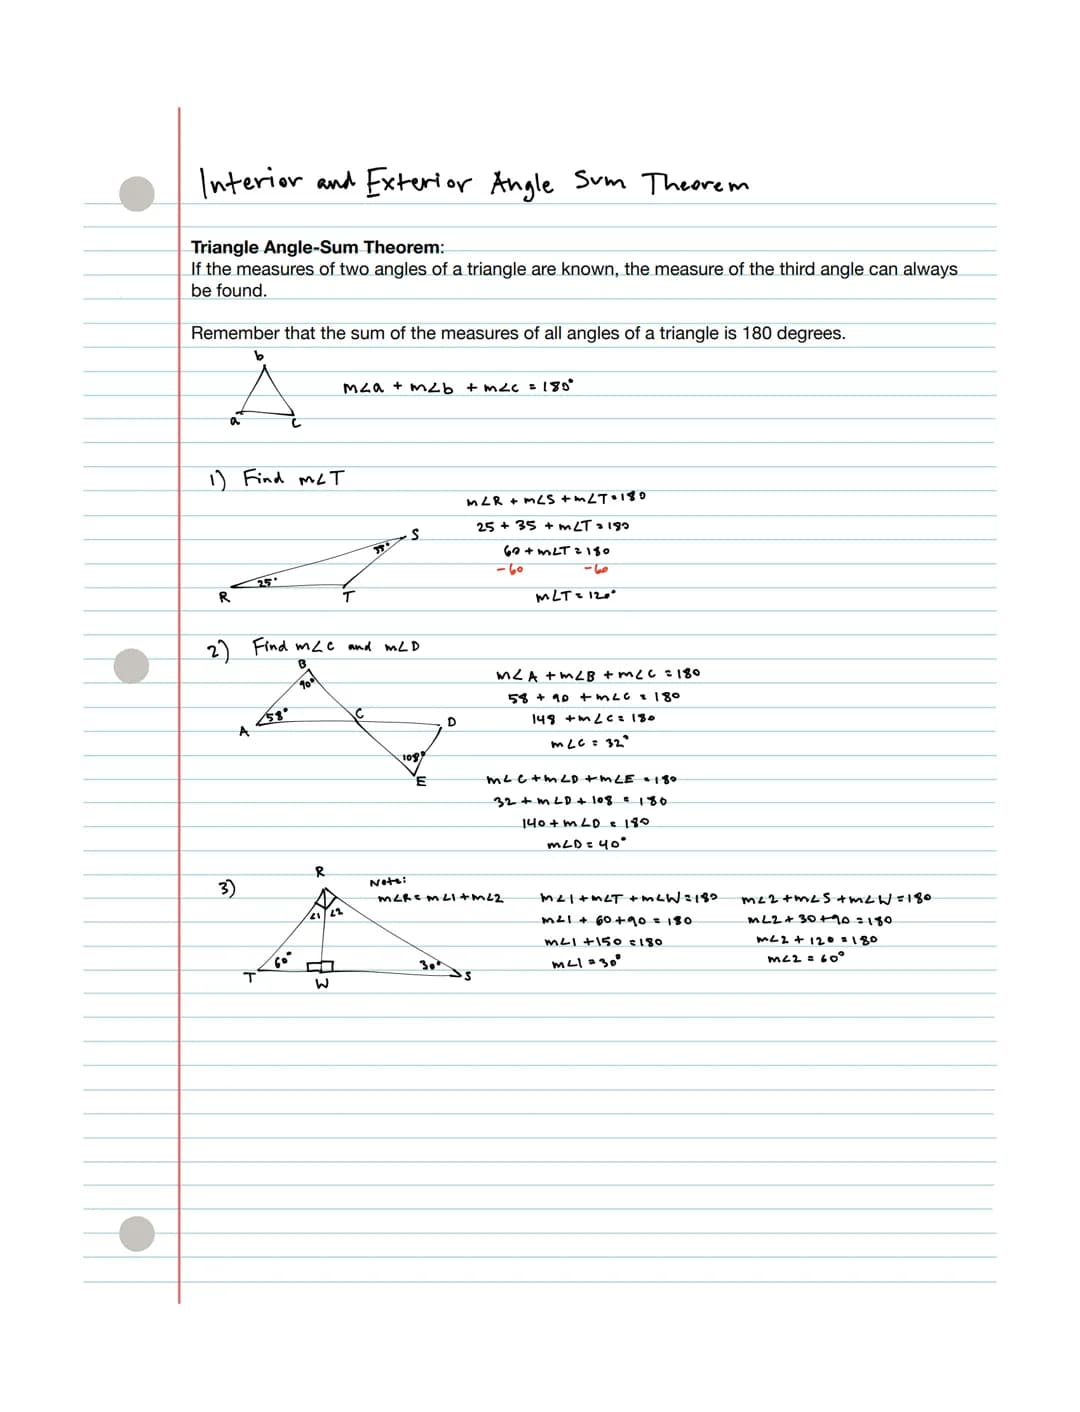 Interior and Exterior Angle Sum Theorem
Triangle Angle-Sum Theorem:
If the measures of two angles of a triangle are known, the measure of the third angle can always
be found.
Remember that the sum of the measures of all angles of a triangle is 180 degrees.
b
m∠a + m∠b + m∠c = 180°
a
c
1) Find m∠T
m∠R + m∠S + m∠T = 180
25 + 35 + m∠T = 180
S
35°
60 + m∠T = 180
-60 -60
25°
R
T
m∠T = 120°
2) Find m∠C and m∠D
B
90°
m∠A + m∠B + m∠C = 180
58 + 90 + m∠C = 180
58°
C
D
A
148 + m∠C = 180
m∠C = 32°
108°
E
m∠C + m∠D + m∠E = 180
32 + m∠D + 108 = 180
140 + m∠D = 180
m∠D = 40°
3)
R
Note:
m∠R = m∠1 + m∠2
∠1 ∠2
60°
30°
T
W
S
m∠1 + m∠T + m∠W = 180
m∠1 + 60 + 90 = 180
m∠1 + 150 = 180
m∠1 = 30°
m∠2 + m∠S + m∠W = 180
m∠2 + 30 + 90 = 180
m∠2 + 120 = 180
m∠2 = 60°